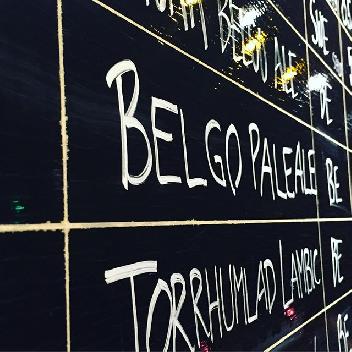 BELGOU ALE
BELGO PALE ALE BE
TORRHUMLAD LAMBIC BE
BE